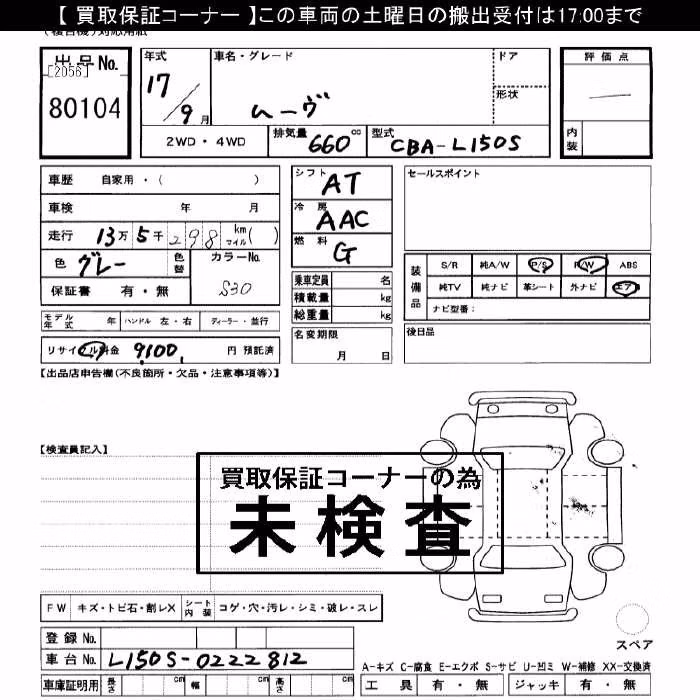 【 買取保証コーナー 】この車両の土曜日の搬出受付は17:00まで
出品No. 年式 車名・グレード ドア 評価点
[2056] 17 形状
80104 9月 ムーヴ 内装
2WD・4WD 排気量 660cc 型式 CBA-L150S
車歴 自家用・( ) シフト AT セールスポイント
車検 年 月 冷房 AAC
走行 13万5千298 km マイル( ) 燃料 G
色 グレー 色替 カラーNo. S30 装備品 S/R 純A/W P/S P/W ABS
保証書 有・無 乗車定員 名 純TV 純ナビ 革シート 外ナビ エアB
積載量 kg ナビ型番:
モデル年式 年 ハンドル 左・右 ディーラー・並行 総重量 kg
リサイクル料金 9100 円 預託済 名変期限 月 日 後日品
【出品店申告欄(不良箇所・欠品・注意事項等)】
【検査員記入】
買取保証コーナーの為
未検査
FW キズ・トビ石・割レX シート内装 コゲ・穴・汚レ・シミ・破レ・スレ
登録No. スペア
車台No. L150S-0222812
A-キズ C-腐食 E-エクボ S-サビ U-凹ミ W-補修 XX-交換済
車庫証明用 長さ cm 幅 cm 高さ cm 工具 有・無 ジャッキ 有・無